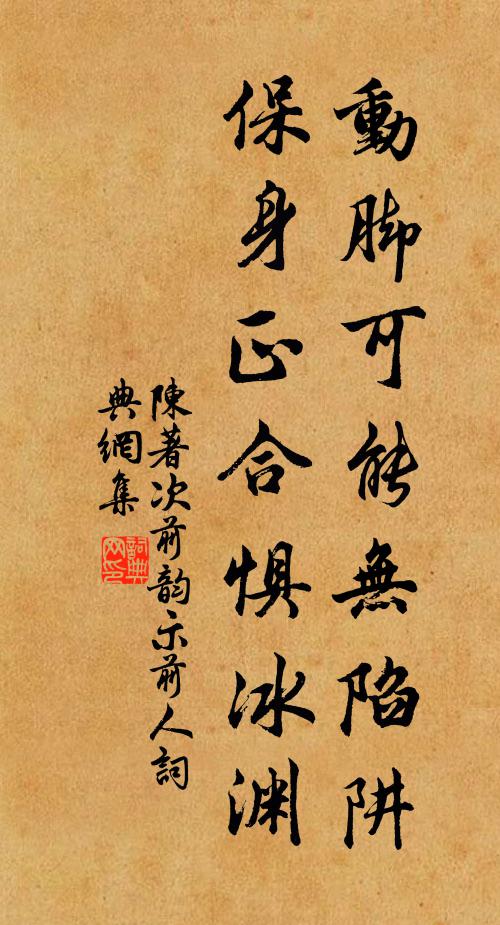 動脚可能無陷阱
保身正合惧冰渊
陳著次前韵示前人詞
典網集
詞典
网印